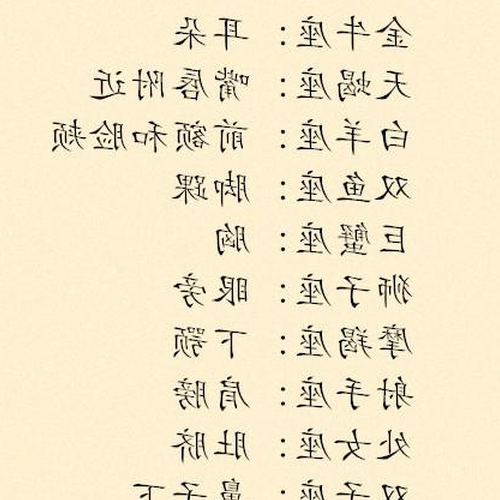 金牛座：耳朵
天蝎座：嘴唇附近
白羊座：前额和脸颊
双鱼座：脚踝
巨蟹座：胸
狮子座：眼旁
摩羯座：下颚
射手座：肩膀
处女座：肚脐
双子座：鼻子下